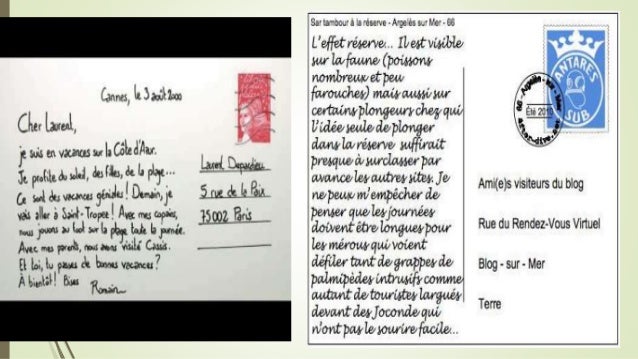 Cannes, le 3 août 2000
Cher Laurent,
je suis en vacances sur la Côte d'Azur.
Je profite du soleil, des filles, de la plage...
Ce sont des vacances géniales ! Demain, je
vais aller à Saint-Tropez ! Avec mes copains,
nous jouons au foot sur la plage toute la journée.
Avec mes parents, nous avons visité Cassis.
Et toi, tu passes de bonnes vacances ?
À bientôt ! Bises
Romain
Laurent Depardieu
5 rue de la Paix
75002 Paris
Sar tambour à la réserve - Argelès sur Mer - 66
L'effet réserve... Il est visible
sur la faune (poissons
nombreux et peu
farouches) mais aussi sur
certains plongeurs chez qui
l'idée seule de plonger
dans la réserve suffirait
presque à surclasser par
avance les autres sites. Je
ne peux m'empêcher de
penser que les journées
doivent être longues pour
les mérous qui voient
défiler tant de grappes de
palmipèdes intrusifs comme
autant de touristes largués
devant des Joconde qui
n'ont pas le sourire facile...
ANTARES
SUB
Eté 2010
Ami(e)s visiteurs du blog
Rue du Rendez-Vous Virtuel
Blog - sur - Mer
Terre